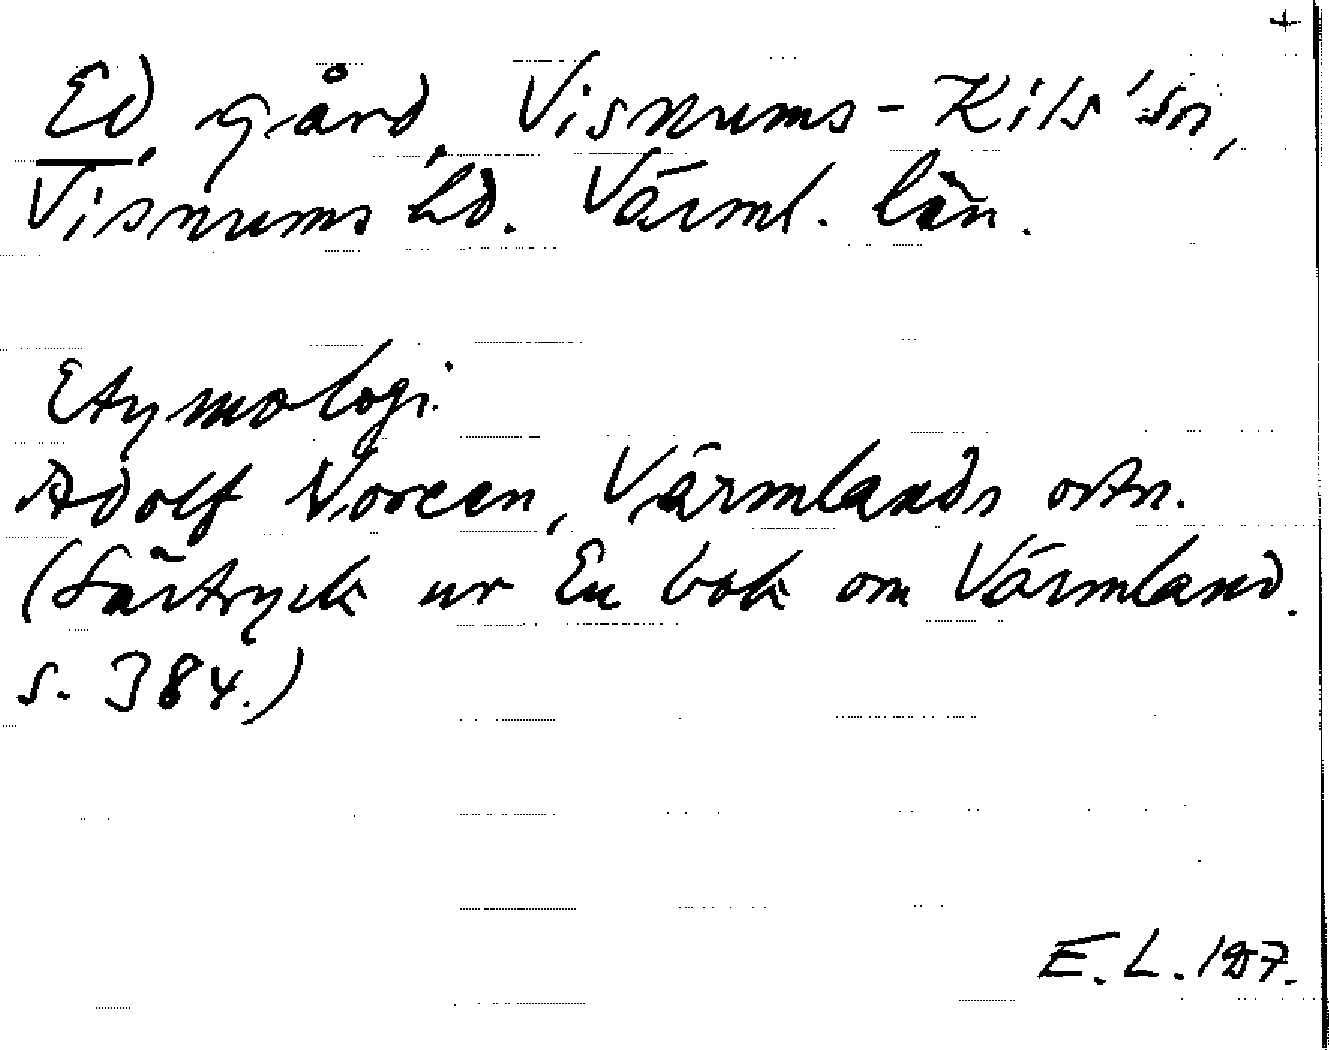 +
Ed, gård, Visnums-Kils sn,
Visnums hd. Värml. län.
Etymologi
Adolf Noreen, Värmlands ortn.
(Särtryck ur En bok om Värmland.
s. 384.)
E. L.